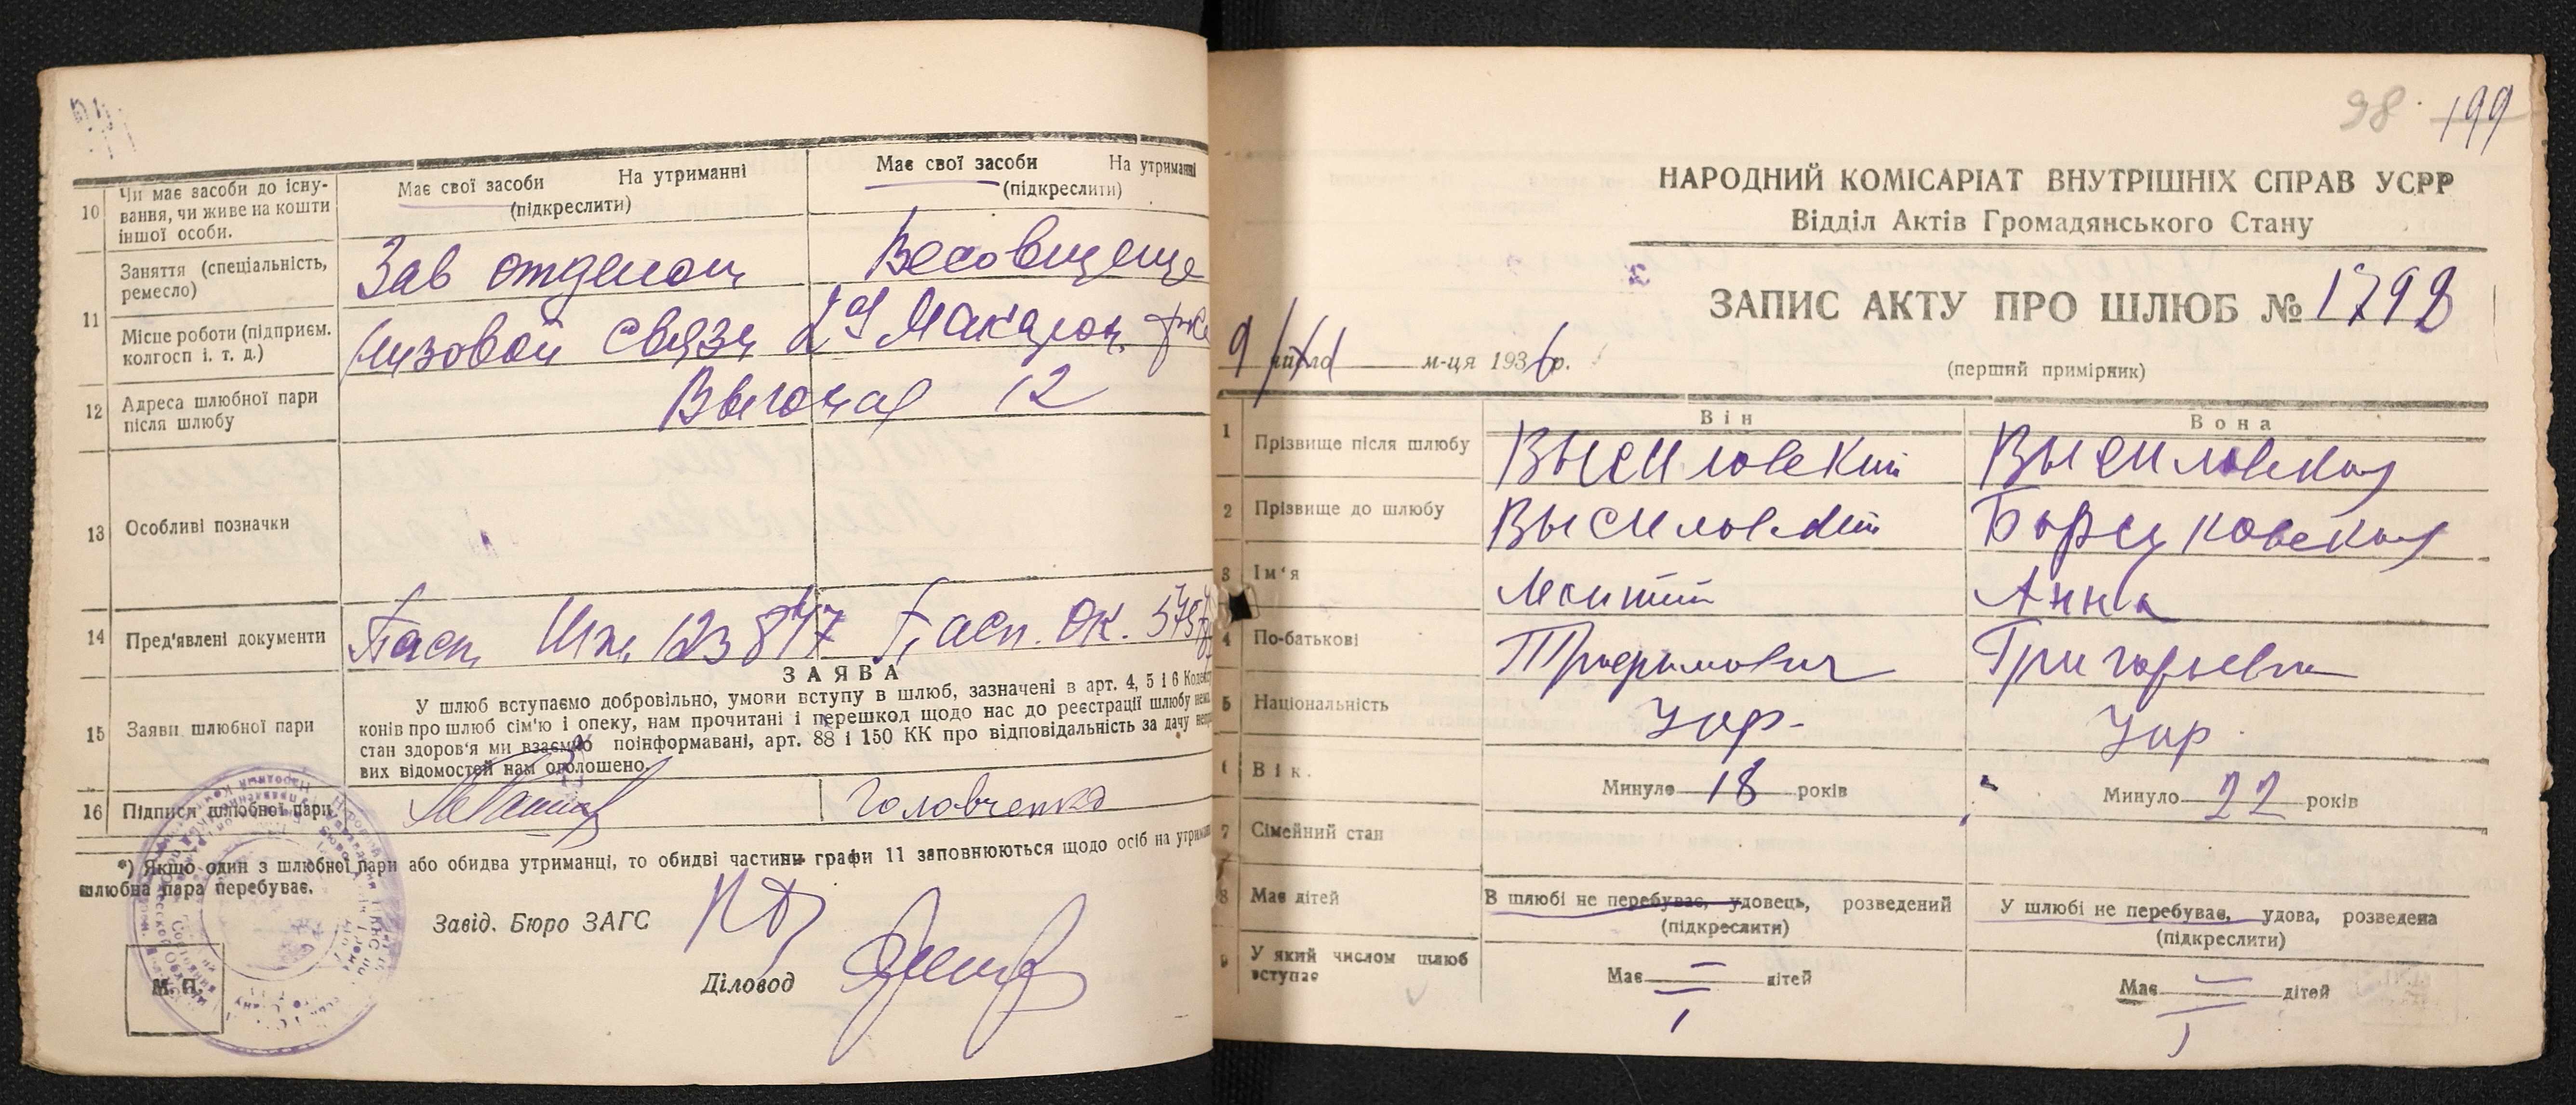 10 Чи має засоби до існу-
вання, чи живе на кошти
іншої особи.
Має свої засоби На утриманні
(підкреслити)
Має свої засоби На утриманні
(підкреслити)
11 Заняття (спеціальність,
ремесло)
Зав отделом
Місце роботи (підприєм.
колгосп і. т. д.)
низовой связи
2ая Макарон.
12 Адреса шлюбної пари
після шлюбу
12
13 Особливі позначки
14 Пред'явлені документи
Пасп. 123847 Пасп. ОК.
ЗАЯВА
15 Заяви шлюбної пари
У шлюб вступаємо добровільно, умови вступу в шлюб, зазначені в арт. 4, 5 і 6
конів про шлюб сім'ю і опеку, нам прочитані і перешкод щодо нас до реєстрації шлюбу
стан здоров'я ми взаємно поінформавані, арт. 88 і 150 КК про відповідальність за дачу
вих відомостей нам оголошено.
16 Підписи шлюбної пари
Головченко
*) Якщо один з шлюбної пари або обидва утриманці, то обидві частини графи 11 заповнюються щодо осіб на
шлюбна пара перебуває.
Завід. Бюро ЗАГС
Діловод
М. П.
98 199
НАРОДНИЙ КОМІСАРІАТ ВНУТРІШНІХ СПРАВ УСРР
Відділ Актів Громадянського Стану
ЗАПИС АКТУ ПРО ШЛЮБ № 1798
9 м-ця 1936 р.
(перший примірник)
Він Вона
1 Прізвище після шлюбу Высиловский Высиловская
2 Прізвище до шлюбу Высиловский Борщковская
3 Ім'я Анна
4 По-батькові Трофимович Григорьевна
5 Національність Укр. Укр.
6 Вік. Минуло 18 років Минуло 22 років
7 Сімейний стан
В шлюбі не перебуває, удовець, розведений
(підкреслити)
У шлюбі не перебуває, удова, розведена
(підкреслити)
8 Має дітей
Має — дітей Має — дітей
9 У який числом шлюб
вступає
I I